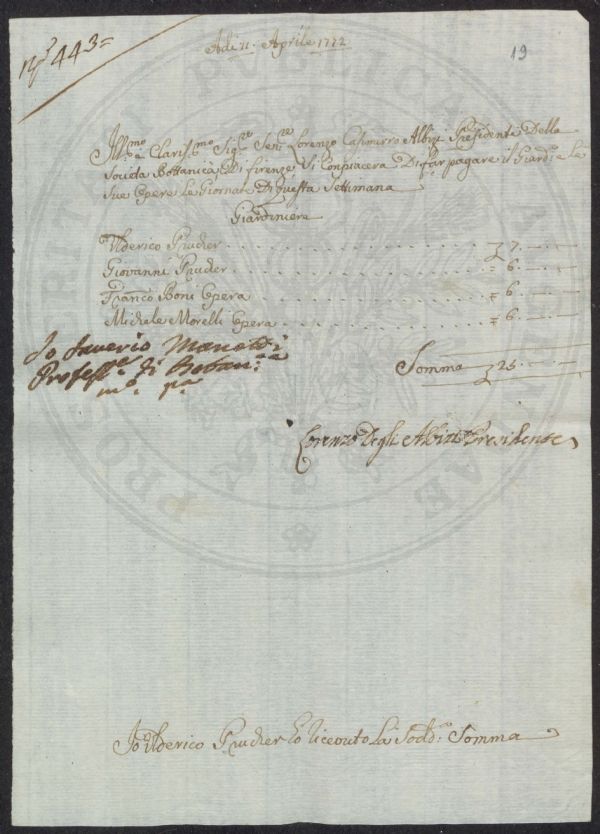 N.º 443=
Adi 11. Aprile 1772
19
Ill:mo e Clariss:mo Sig:re Sen:re Lorenzo Casimirro Albizi Presidente Della
Società Bottanica Di Firenze Si Conpiacerà Di far pagare il Giard:e e Le
Sue Opere Le Giornate Di questa Settimana
Giardiniere
Ulderico Prucher . . . . £ 7. —. —
Giovanni Prucher . . . . = 6. —. —
Franco Boni Opera . . . . £ 6. —. —
Michele Morelli Opera . . . . £ 6. —. —
Io Saverio Manetti
Profess:re di Botan:ca
m:o p:a
Somma £ 25. —. —
Lorenzo Degli Albizi Presidente
Io Ulderico Prucher ho riceuto La Sod:a Somma